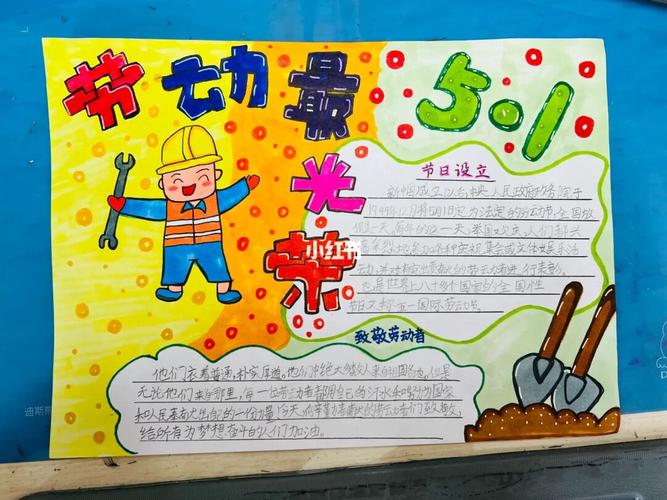 劳动最
光
荣
5.1
小红书
节日设立
新中国成立以后,中央人民政府政务院于
1949年12月将5月1日定为法定的劳动节,全国放
假一天。每年的这一天,举国欢庆,人们都兴
高采烈地参加各种庆祝集会或文体娱乐活
动,并对有突出贡献的劳动者进行表彰。
也是世界上八十多个国家的全国性
节日又称五一国际劳动节
致敬劳动者
他们衣着普通,朴实厚道。他们中绝大多数人来自祖国各地,但是
无论他们来自哪里,每一位劳动者都用自己的汗水和努力为国家
和人民奉献出自己的一份力量
给所有为梦想奋斗的人们加油。
迪斯